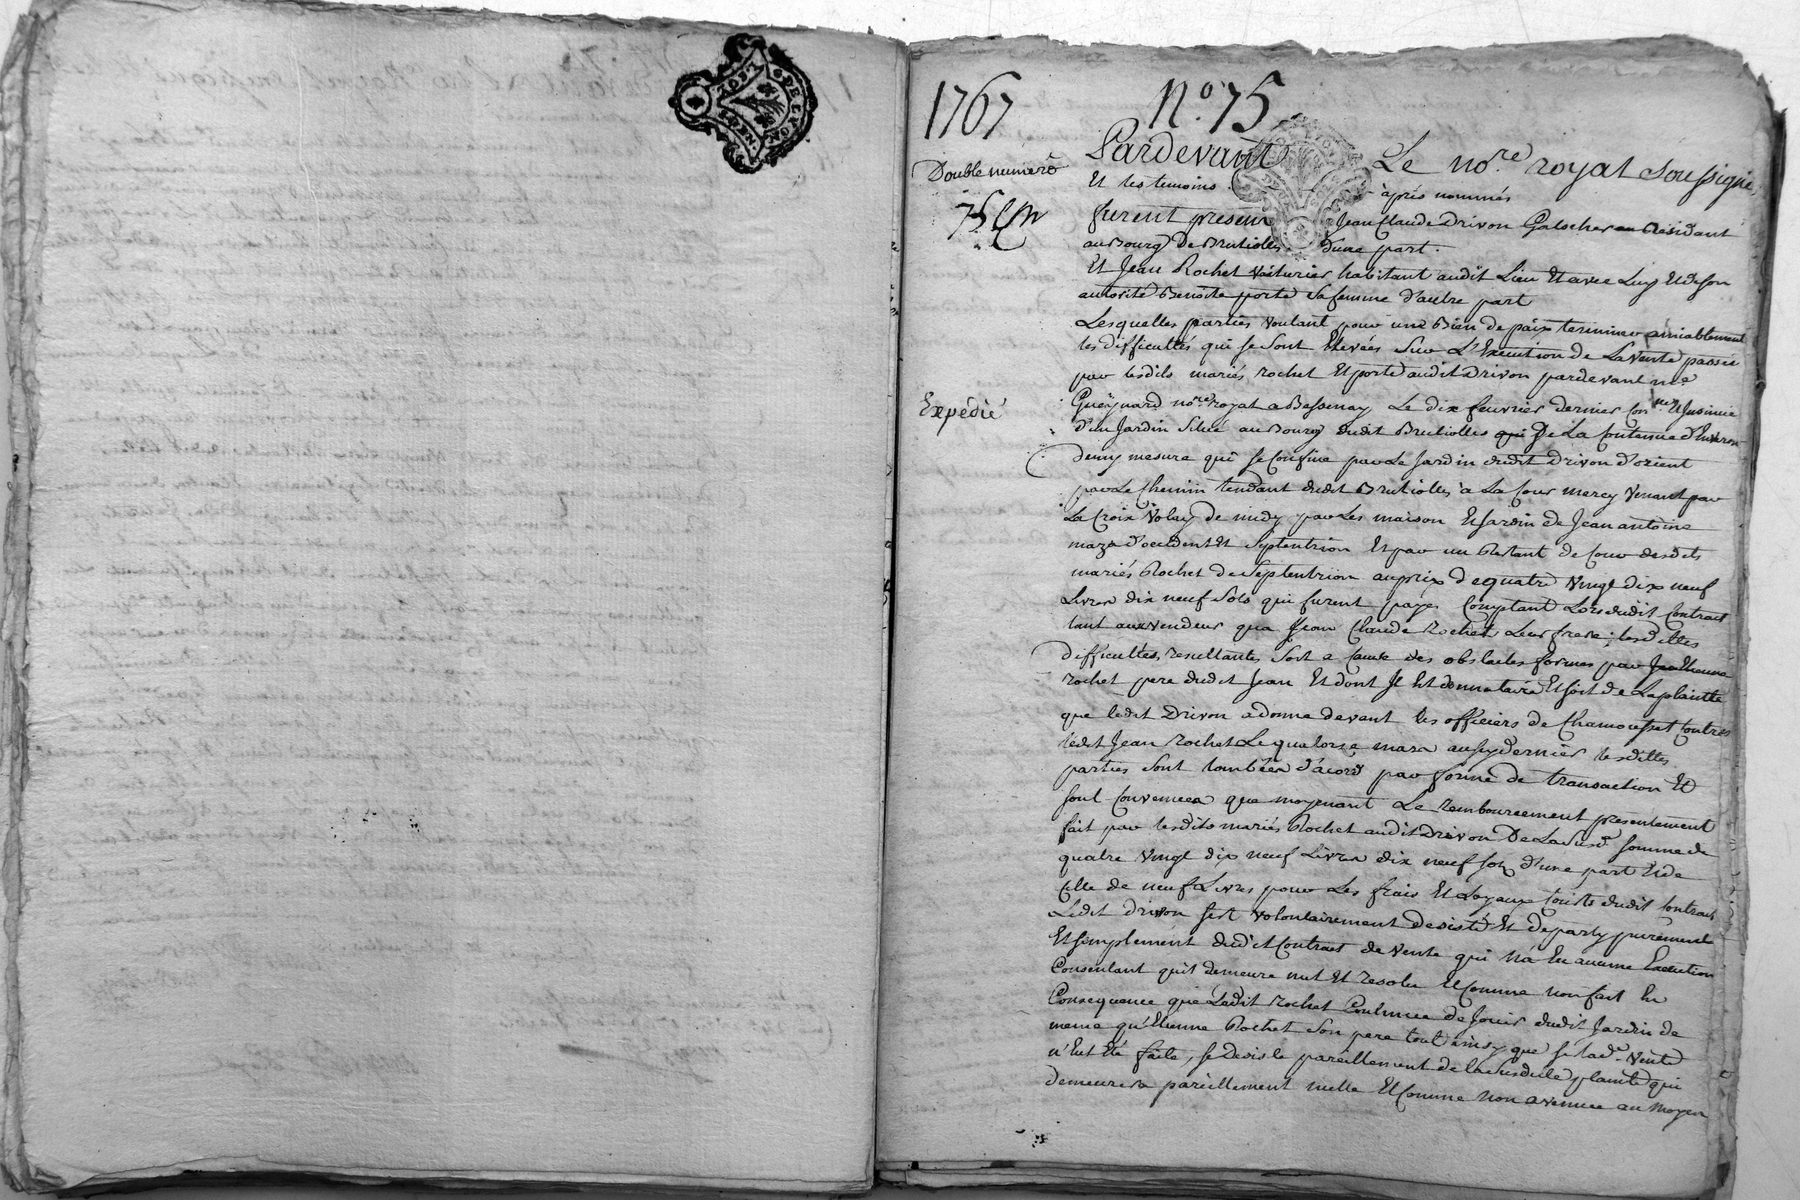 1767
No. 75
Double numero
75
Expédié
Pardevant Le no.re royal soussigné,
Et les temoins après nommés
furent presens Jean Claude Drivon Galocher Residant
au Bourg De Brutiolles d'une part.
Et Jean Rochet Voiturier habitant audit Lieu Et avec Luy Et de son
autorité Benoite porte Sa femme d'autre part
Lesquelles parties Voulant pour une Bien de paix terminer amiablement
les difficultés qui se sont Elevées Sur L'Execution de La vente passée
par lesdits mariés rochet Et porte audit Drivon pardevant me
Gueynard no.re royal a Bessenay Le dix fevrier dernier Con.né Et Jnsinué
d'un Jardin Situé au Bourg dudit Brutiolles De La Contenue d'Environ
demy mesure qui se Confine par Le Jardin dudit Drivon d'orient
par Le Chemin tendant dudit Brutiolles à La Cour mercy Venant par
La Croix Volay de midy par Les maison Et Jardin de Jean antoine
maza d'occident Et Septentrion Et par un Restant de Cour desdits
mariés Rochet De Septentrion au prix de quatre Vingt dix neuf
Livres dix neuf Sols qui furent payés Comptant Lors dudit Contract
tant aux vendeur qua Jean Claude Rochet Leur frere; lesdittes
difficultés resultantes Soit a Cause des obstacles formés par
rochet pere dudit Jean Et dont Jl Est donnataire Et soit de La plainte
que ledit Drivon a donné devant les officiers de Chamousset Contre
ledit Jean Rochet Le quatorze mars aussy dernier lesdittes
parties sont tombées d'acord par forme de transaction Et
sont Convenues que moyenant Le rembourcement presentement
fait par lesdits mariés Rochet audit Drivon De La Susd.e somme de
quatre Vingt dix neuf Livres dix neuf sols d'une part Et de
Celle de neuf Livres pour Les frais Et Loyaux Couts dudit Contract
Ledit drivon sest Volontairement desisté Et departy purement
Et simplement dudit Contract de Vente qui n'a Eu aucune Execution
Consentant quil demeure nul Et resolu Et Comme non fait En
Consequence que Ledit rochet Continue de Jouir dudit Jardin de
meme qu'Etienne Rochet Son pere tout ainsy que si lad.e Vente
n'Eut Eté faite, se Desiste pareillement de la Susditte plainte qui
demeurera pareillement nulle Et Comme non avenue au moyen